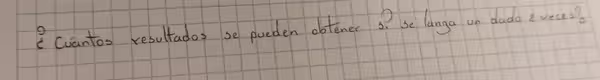 ¿Cuántos resultados se pueden obtener si? se lanza un dado 2 veces?